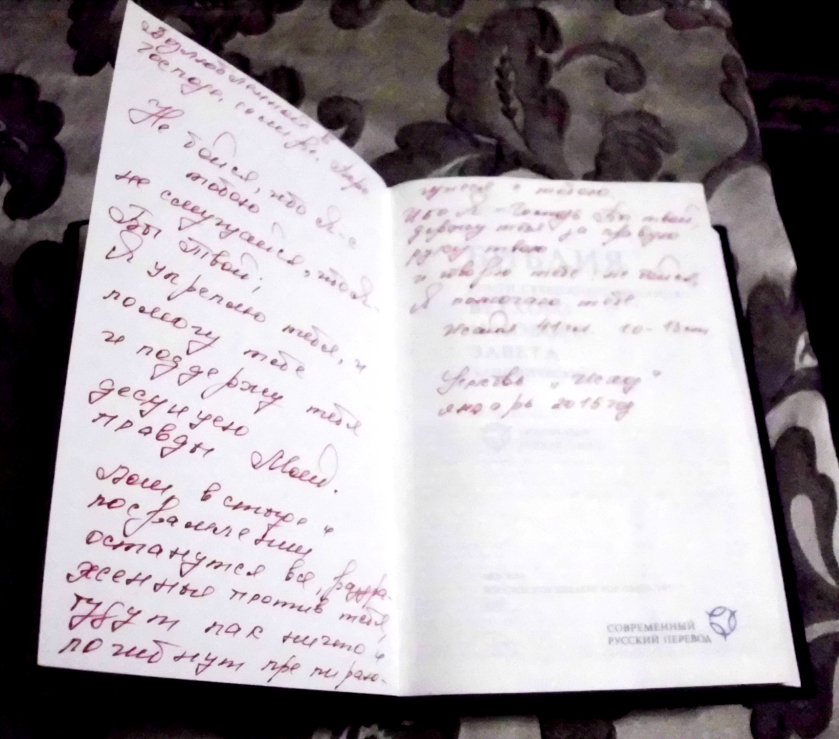 Возлюбленный
Господа,
Не бойся, ибо Я - с
тобою
не смущайся, ибо Я -
Бог твой;
Я укреплю тебя, и
помогу тебе
и поддержу тебя
десницею
правды Моей.
Вот, в стыде и
посрамлении
останутся все, раздра-
женные против тебя,
будут как ничто и
погибнут препираю-
щиеся с тобою.
Ибо Я - Господь Бог твой,
держу тебя за правую
руку твою
и говорю тебе не бойся,
Я помогаю тебе.
Исаия 41 гл. 10 - 13 ст.
"Исход"
январь 2015 год
ЗАВЕТА
СОВРЕМЕННЫЙ
РУССКИЙ ПЕРЕВОД